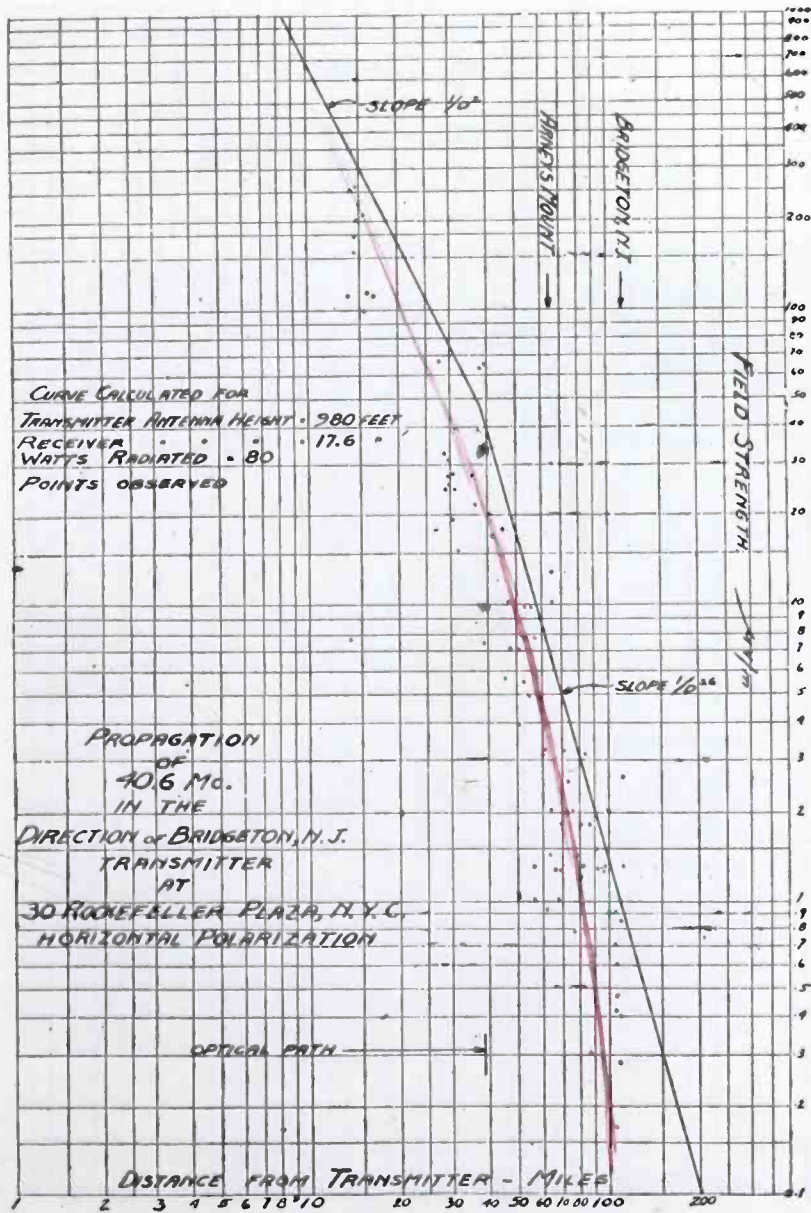 SLOPE 1/D²
ARNEYS MOUNT
BRIDGETON, N.J.
FIELD STRENGTH
CURVE CALCULATED FOR
TRANSMITTER ANTENNA HEIGHT · 980 FEET
RECEIVER " " " 17.6 "
WATTS RADIATED - 80
POINTS OBSERVED
SLOPE 1/D³·⁶
PROPAGATION
OF
40.6 Mc.
IN THE
DIRECTION OF BRIDGETON, N.J.
TRANSMITTER
AT
30 ROCKEFELLER PLAZA, N.Y.C.
HORIZONTAL POLARIZATION
OPTICAL PATH
DISTANCE FROM TRANSMITTER - MILES
1 2 3 4 5 6 7 8 9 10 20 30 40 50 60 70 80 100 200
1000
900
800
700
600
500
400
300
200
100
90
80
70
60
50
40
30
20
10
9
8
7
6
5
4
3
2
1
9
8
7
6
5
4
3
2
0.1